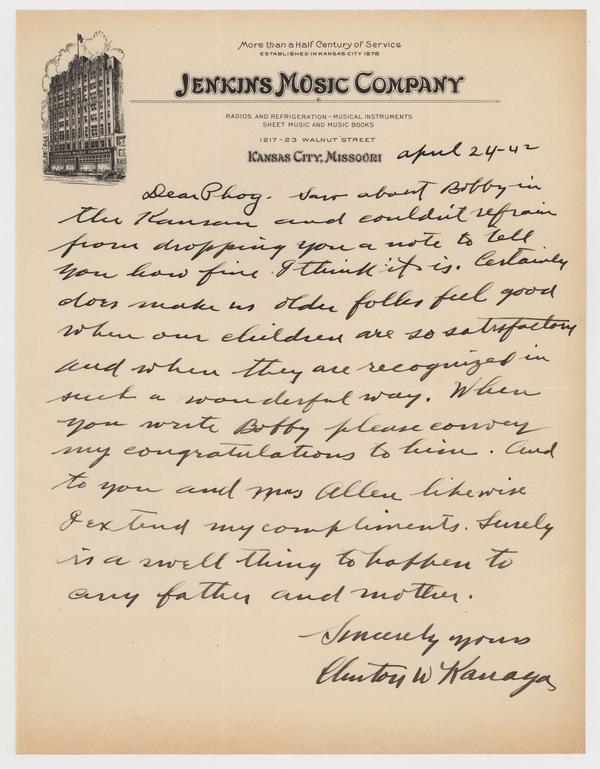 More than a Half Century of Service
ESTABLISHED IN KANSAS CITY 1878
JENKINS MUSIC COMPANY
RADIOS AND REFRIGERATION - MUSICAL INSTRUMENTS
SHEET MUSIC AND MUSIC BOOKS
1217-23 WALNUT STREET
KANSAS CITY, MISSOURI
JENKINS MUSIC COMPANY
april 24-42
Dear Phog. Saw about Bobby in
the Kansan and couldn't refrain
from dropping you a note to tell
you how fine I think it is. Certainly
does make us older folks feel good
when our children are so satisfactory
and when they are recognized in
such a wonderful way. When
you write Bobby please convey
my congratulations to him. And
to you and Mrs Allen likewise
I extend my compliments. Surely
is a swell thing to happen to
any father and mother.
Sincerely yours
Clinton W Kanaga